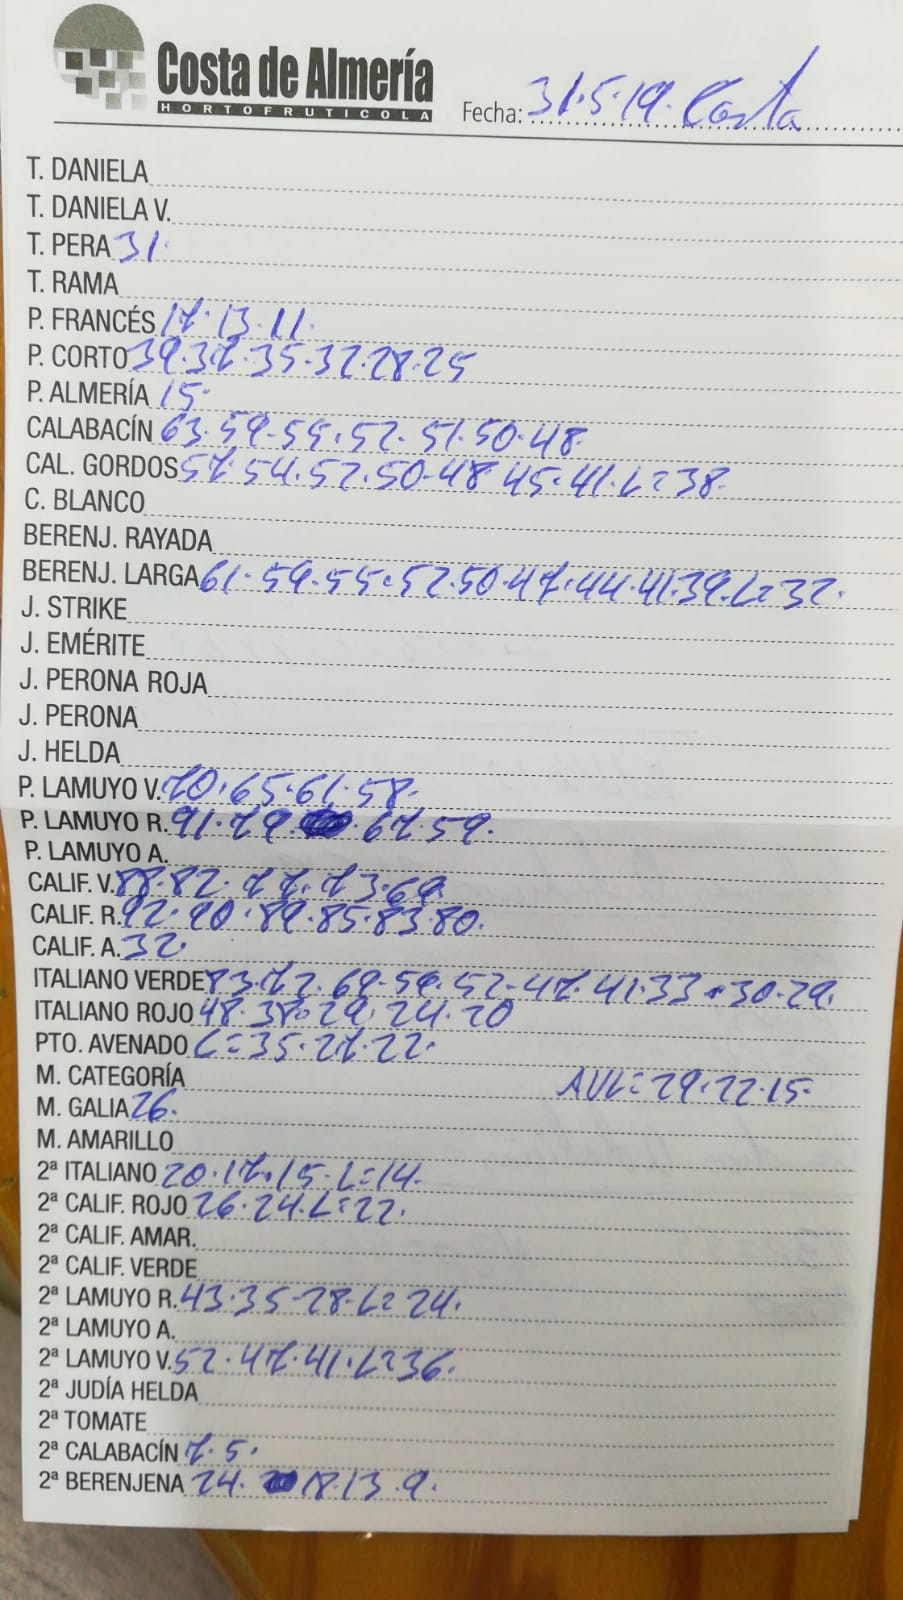 Costa de Almería
HORTOFRUTICOLA
Fecha: 31.5.19. Costa
T. DANIELA
T. DANIELA V.
T. PERA 31.
T. RAMA
P. FRANCÉS 17.13.11.
P. CORTO 39.37.35.32.28.25
P. ALMERÍA 15.
CALABACÍN 63.59.55.52.51.50.48
CAL. GORDOS 57.54.52.50.48 45.41.L=38.
C. BLANCO
BERENJ. RAYADA
BERENJ. LARGA 61.59.55.52.50.47.44.41.39.L=32.
J. STRIKE
J. EMÉRITE
J. PERONA ROJA
J. PERONA
J. HELDA
P. LAMUYO V. 70.65.61.58.
P. LAMUYO R. 91.79. 67.59.
P. LAMUYO A.
CALIF. V. 88.82.77.73.69.
CALIF. R. 92.90.89.85.83.80.
CALIF. A. 32.
ITALIANO VERDE 83.72.69.59.52.47.41.33.30.29.
ITALIANO ROJO 48.38.29.24.20
PTO. AVENADO L=35.27.22.
M. CATEGORÍA AVL=29.22.15.
M. GALIA 26.
M. AMARILLO
2ª ITALIANO 20.17.15.L=14.
2ª CALIF. ROJO 26.24.L=22.
2ª CALIF. AMAR.
2ª CALIF. VERDE
2ª LAMUYO R. 43.35.28.L=24.
2ª LAMUYO A.
2ª LAMUYO V. 52.47.41.L=36.
2ª JUDÍA HELDA
2ª TOMATE
2ª CALABACÍN 7.5.
2ª BERENJENA 24. 18.13.9.